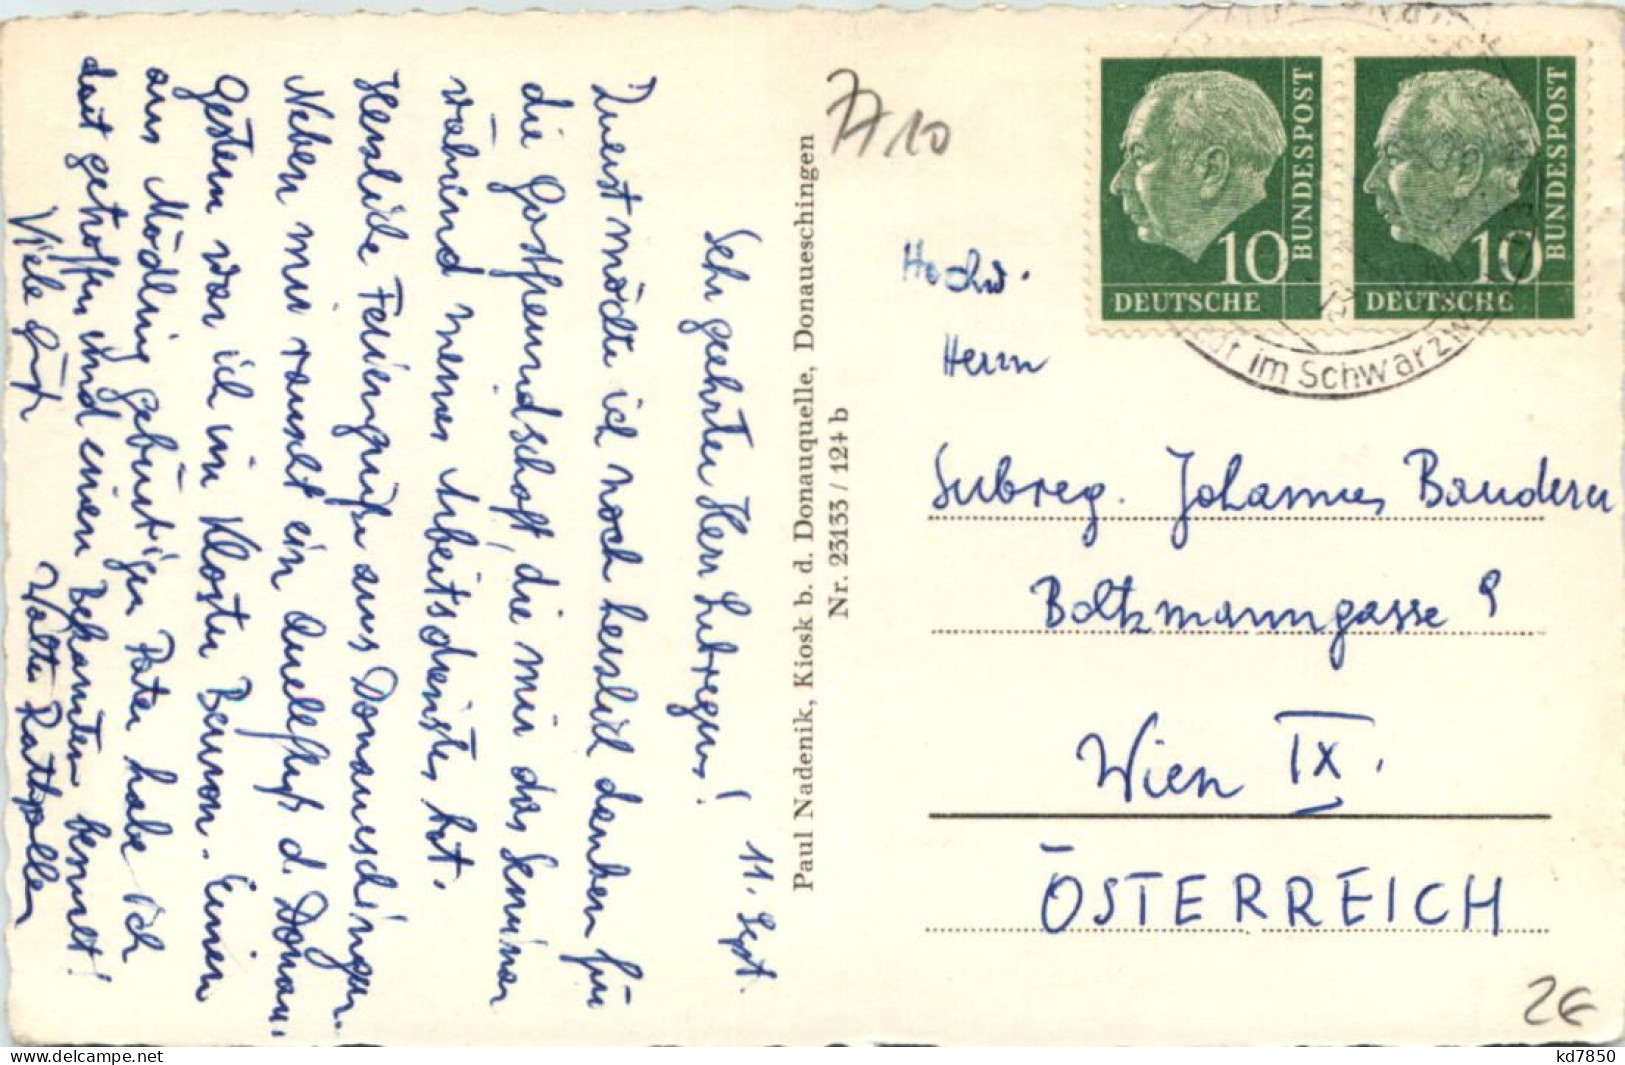 11. Sept.
Sehr geehrter Herr Subregens!
Zuerst möchte ich noch herzlich danken für
die Gastfreundschaft, die mir das Seminar
während meines Arbeitsdienstes bot.
Herzliche Feriengrüße aus Donaueschingen.
Neben mir rauscht ein Quellfluß d. Donau.
Gestern war ich im Kloster Beuron. Einen
aus Mödling gebürtigen Pater habe ich
dort getroffen und einen Bekannten besucht!
Viele Grüße
Walter
Paul Nadenik, Kiosk b. d. Donauquelle, Donaueschingen
Nr. 23133 / 124 b
10
DEUTSCHE
BUNDESPOST
10
DEUTSCHE
BUNDESPOST
im Schwarzw
Hochw.
Herrn
Subreg. Johannes
Boltzmanngasse 9
Wien IX.
ÖSTERREICH
2€
kd7850
www.delcampe.net